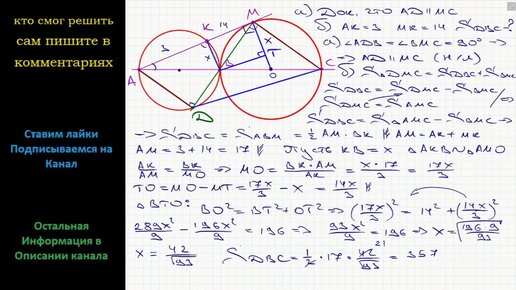 кто смог решить
сам пишите в
комментариях
Ставим лайки
Подписываемся на
Канал
Остальная
Информация в
Описании канала
М
К
14
3
х
х
Т
А
В
О
С
D
а) Док, что AD || MC
б) AK = 3 MK = 14 S_DBC = ?
а) ∠ADB = ∠BMC = 90° →
→ AD || MC (н/л)
б) S_DMC = S_DBC + S_BMC
S_DMC = S_AMC
S_DBC = S_AMC - S_BMC →
→ S_DBC = S_ABM = 1/2 AM · BK // AM = AK + MK
AM = 3 + 14 = 17 // Пусть KB = x △AKB∾△AMO
AK/AM = BK/MO → MO = BK·AM/AK = x·17/3 = 17x/3
TO = MO - MT = 17x/3 - x = 14x/3
△BTO: BO² = BT² + OT² ⇒ (17x/3)² = 14² + (14x/3)²
289x²/9 - 196x²/9 = 196 → 93x²/9 = 196 → x = √(196·9/93)
x = 42/√93 S_DBC = 1/2 · 17 · 42/√93 = 357